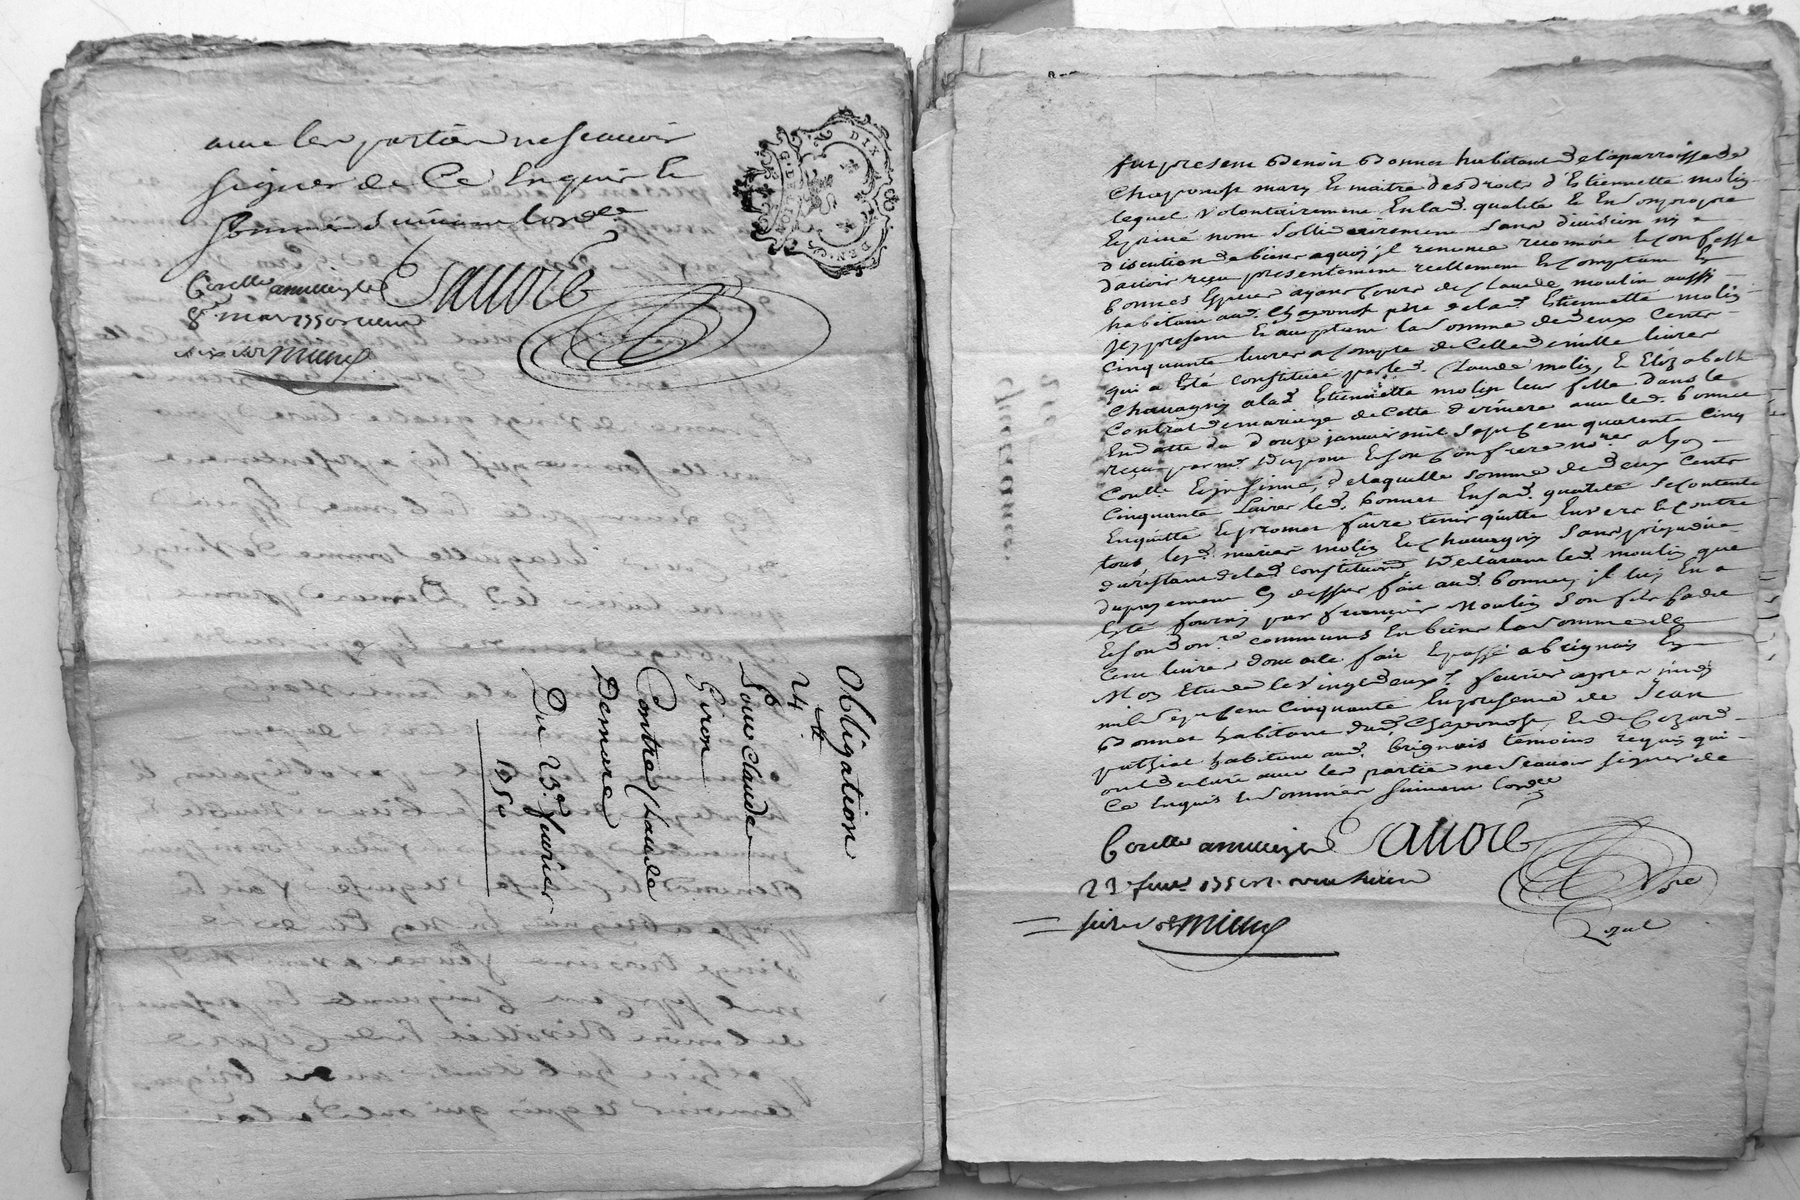 avec les parties ne scavoir
signer de Ce Enquis et
sommés suivant lordce
Controllé
8e mars 1750 recu
DIX DEN
G. DE LYON
Sauvore
Obligation
24 tt
Pour Claude
Giron
Contre Claude
Demure
Du 23e fevrier
1750
Fut present Benoit Bonnet habitant de la parroisse de
Chaponost mary et maitre des droits d'Estiennette molin
lequel volontairement En lad. qualité et En son propre
et privé nom sollidairement sans division ny
discution de biens a quoy il renonce reconnoit et confesse
d'avoir reçu presentement reellement et comptant En
bonnes Especes ayant cours de Claude moulin aussi
habitant aud. Chaponost pere de lad. Estiennette molin
icy present et acceptant la somme de deux Cents
Cinquante livres a compte de Celle de mille livres
qui a Esté constituée par led. Claude molin, et Elizabeth
Chavagnin a lad. Estiennette molin leur fille dans le
Contrat de mariage de Cette derniere avec led. Bonnet
En datte du douze janvier mil sept cent quarente Cinq
reçu par me Dugone et son Confrere nores a Lyon
Conllé et insinué, de laquelle somme de deux Cents
Cinquante Livres led. Bonnet En sad. qualité se contente
En quitte et promet faire tenir quitte Envers et contre
tous lesd. mariés molin et Chavagnin sans prejudice
du restant de lad. constitution Declarant led. moulin que
du payement Cy dessus fait aud. Bonnet, il luy En a
Esté fourny par françois Moulin son fils Cadet
et son donre communs En biens la somme de
Cent livres dont acte fait et passé a Brignais En
Mon Etude le vingt deuxe fevrier apres midy
mil sept cent cinquante En presence de Jean
Bonnet habitant dud. Chaponost, et de Cezard
puthiat habitant aud. Brignais temoins requis qui
ont declaré avec les parties ne scavoir signer de
Ce Enquis et sommés suivant lordce
Controllé
Sauvore
Nore
Royal
22e fevr. 1750